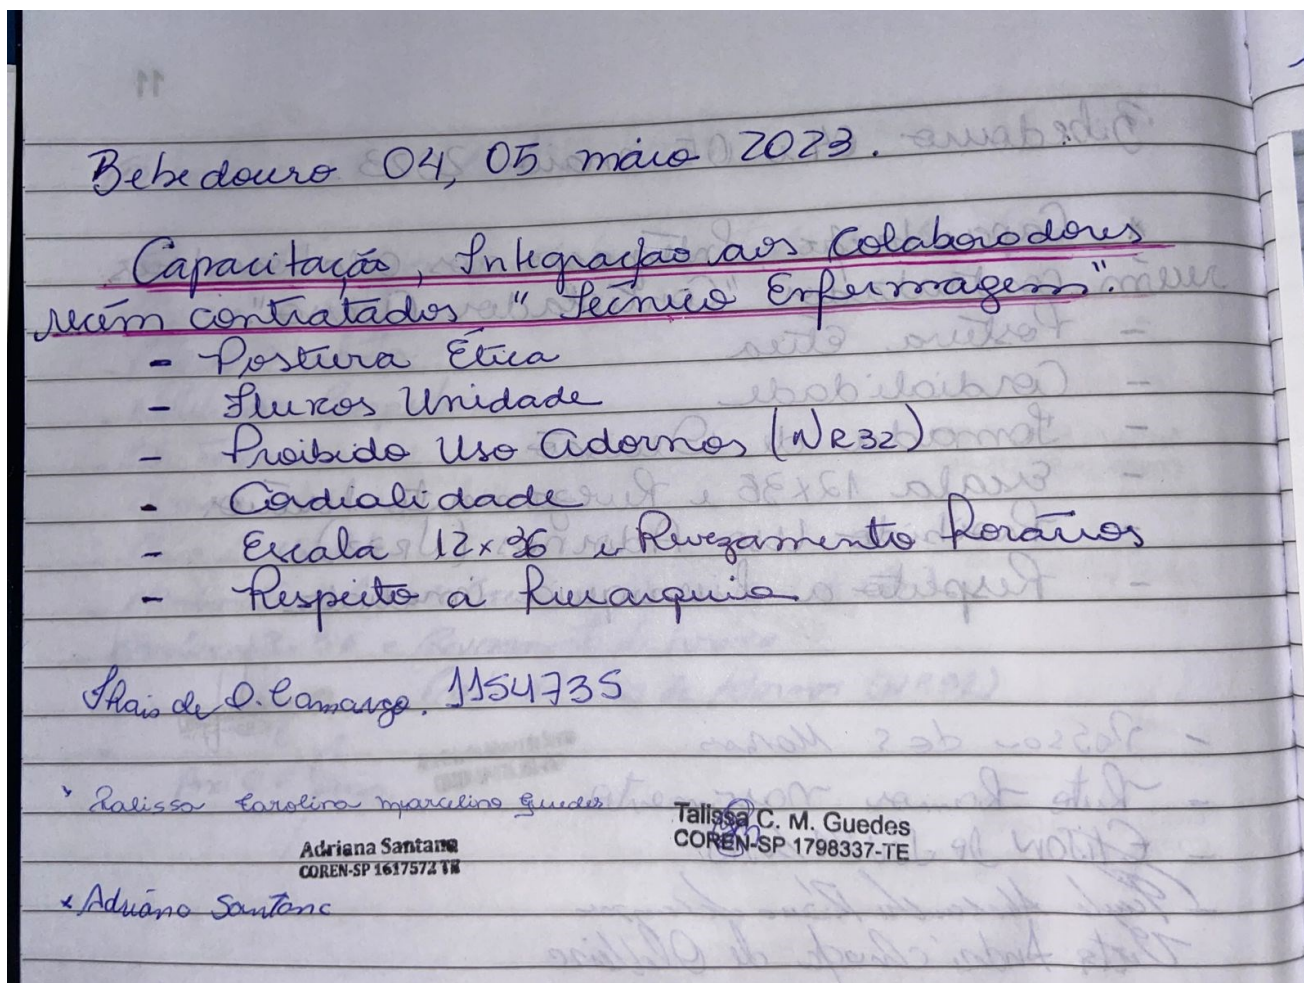 Bebedouro 04, 05 maio 2023.
Capacitação, Integração aos Colaboradores
recém contratados "Técnico Enfermagem".
- Postura Ética
- Fluxos Unidade
- Proibido Uso Adornos (NR32)
- Cordialidade
- Escala 12x36 e Revezamento Horários
- Respeito a Hierarquia
Thais de O. Camargo. 1154735
Talissa Carolina Marcelino Guedes
Talissa C. M. Guedes
COREN-SP 1798337-TE
Adriana Santana
COREN-SP 1617572 TE
x Adriana Santana